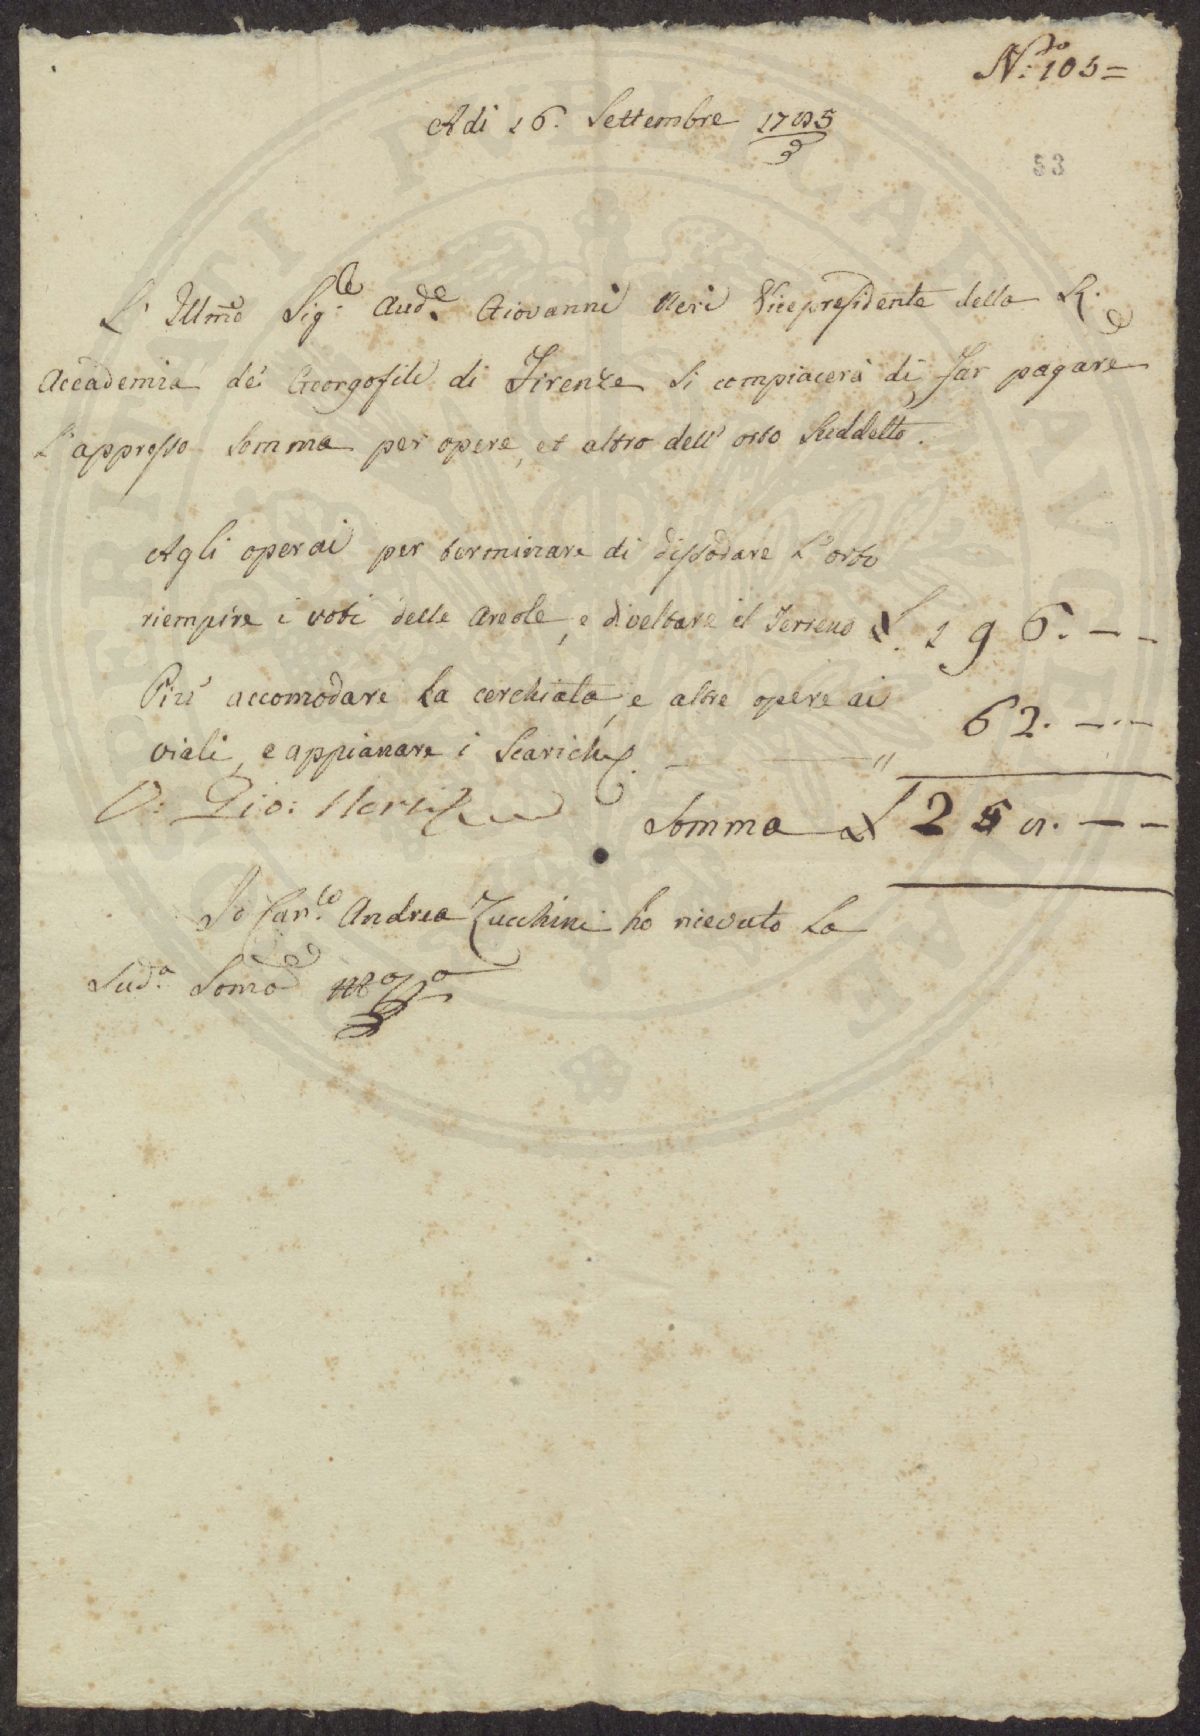 N:ro 105=
Adi 16. Settembre 1785
53
L' Illmo Sig:e Aud.e Giovanni Neri Vicepresidente della R.e
Accademia de' Georgofili di Firenze si compiacerà di far pagare
l'appresso somma per opere, et altro dell'orto suddetto.
Agli operai per terminare di dissodare l'orto
riempire i voti delle Areole, e diveltare il Terreno £. 196. — —
Più accomodare la cerchiata, e altre opere ai
viali, e appianare i Scarichi. — — " 62. — —
V: Gio: Neri
Somma £ 258. — —
Io Can:co Andrea Zucchini ho ricevuto la
Sud.a Soma